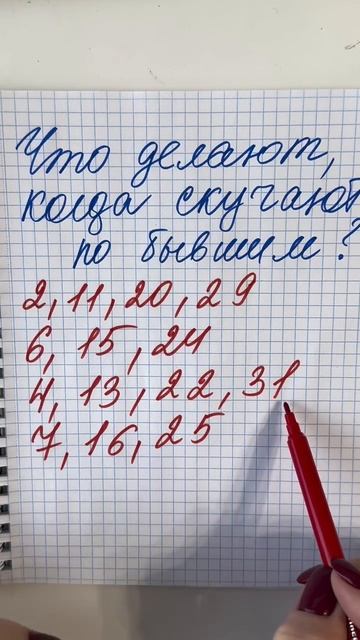 Что делают,
когда скучают
по бывшим?
2, 11, 20, 29
6, 15, 24
4, 13, 22, 31
7, 16, 25